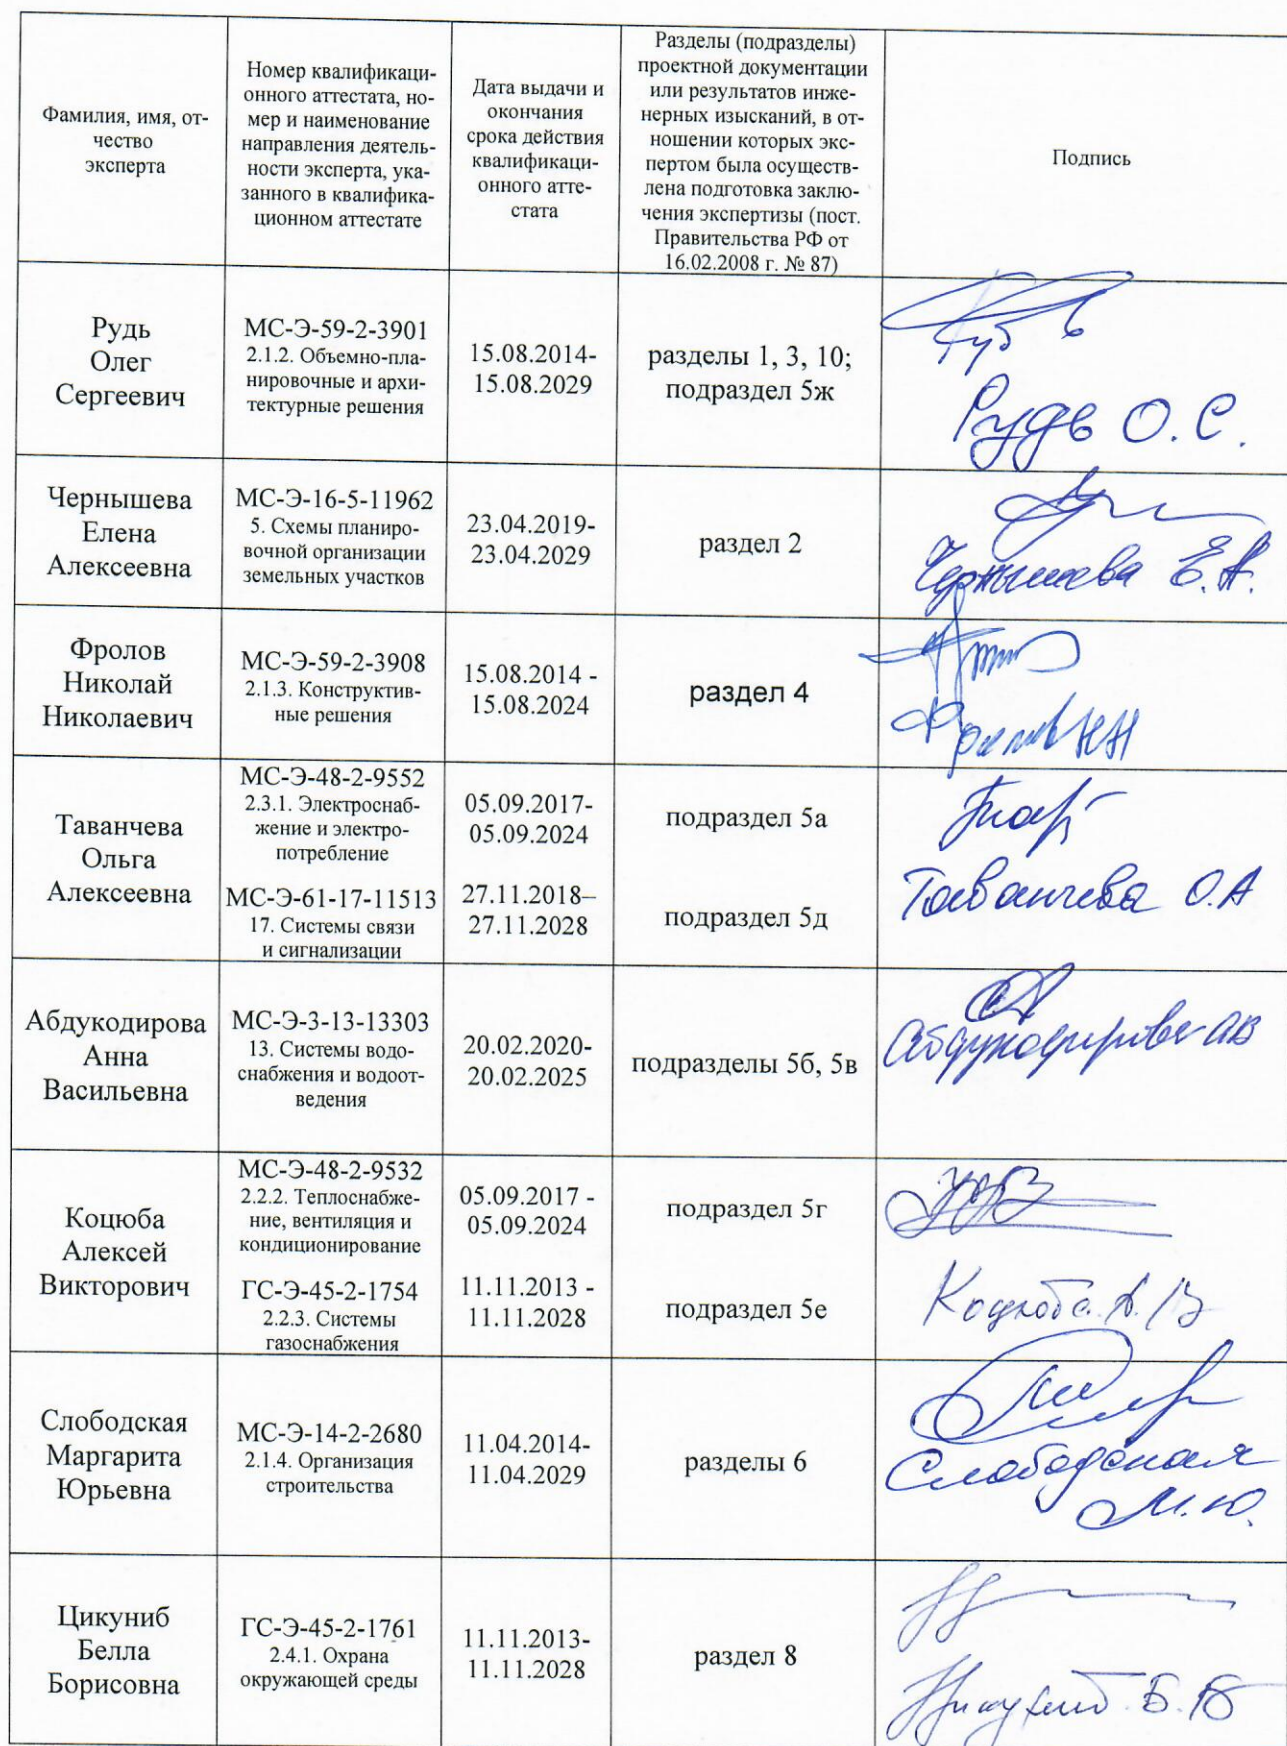 Фамилия, имя, от-
чество
эксперта
Номер квалификаци-
онного аттестата, но-
мер и наименование
направления деятель-
ности эксперта, ука-
занного в квалифика-
ционном аттестате
Дата выдачи и
окончания
срока действия
квалификаци-
онного атте-
стата
Разделы (подразделы)
проектной документации
или результатов инже-
нерных изысканий, в от-
ношении которых экс-
пертом была осуществ-
лена подготовка заклю-
чения экспертизы (пост.
Правительства РФ от
16.02.2008 г. № 87)
Подпись
Рудь
Олег
Сергеевич
МС-Э-59-2-3901
2.1.2. Объемно-пла-
нировочные и архи-
тектурные решения
15.08.2014-
15.08.2029
разделы 1, 3, 10;
подраздел 5ж
Рудь О.С.
Чернышева
Елена
Алексеевна
МС-Э-16-5-11962
5. Схемы планиро-
вочной организации
земельных участков
23.04.2019-
23.04.2029
раздел 2
Чернышева Е.А.
Фролов
Николай
Николаевич
МС-Э-59-2-3908
2.1.3. Конструктив-
ные решения
15.08.2014 -
15.08.2024
раздел 4
Фролов НН
Таванчева
Ольга
Алексеевна
МС-Э-48-2-9552
2.3.1. Электроснаб-
жение и электро-
потребление
05.09.2017-
05.09.2024
подраздел 5а
МС-Э-61-17-11513
17. Системы связи
и сигнализации
27.11.2018–
27.11.2028
подраздел 5д
Таванчева О.А
Абдукодирова
Анна
Васильевна
МС-Э-3-13-13303
13. Системы водо-
снабжения и водоот-
ведения
20.02.2020-
20.02.2025
подразделы 5б, 5в
Абдукодирова АВ
Коцюба
Алексей
Викторович
МС-Э-48-2-9532
2.2.2. Теплоснабже-
ние, вентиляция и
кондиционирование
05.09.2017 -
05.09.2024
подраздел 5г
ГС-Э-45-2-1754
2.2.3. Системы
газоснабжения
11.11.2013 -
11.11.2028
подраздел 5е
Коцюба А.В
Слободская
Маргарита
Юрьевна
МС-Э-14-2-2680
2.1.4. Организация
строительства
11.04.2014-
11.04.2029
разделы 6
Слободская
М.Ю.
Цикуниб
Белла
Борисовна
ГС-Э-45-2-1761
2.4.1. Охрана
окружающей среды
11.11.2013-
11.11.2028
раздел 8
Цикуниб Б.Б